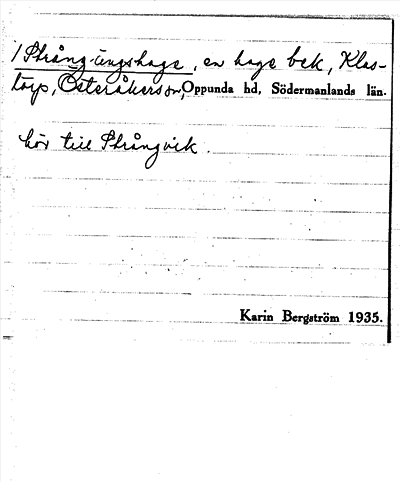 / Skrång-ängshage, en hage bek, Klas-
torp, Österåkers sn, Oppunda hd, Södermanlands län.
hör till Skrångvik.
Karin Bergström 1935.